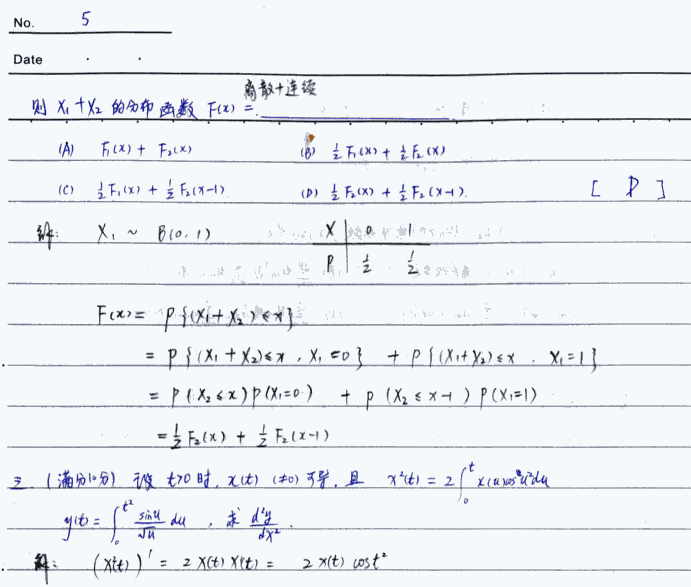 No. 5
Date . .
离散+连续
则 X₁+X₂ 的分布函数 F(x) =
(A) F₁(x) + F₂(x) (B) ½F₁(x) + ½F₂(x)
(C) ½F₁(x) + ½F₂(x-1) (D) ½F₂(x) + ½F₂(x-1). [ D ]
解: X₁ ~ B(0,1) X 0 1
P ½ ½
F(x) = P{(X₁+X₂)≤x}
= P{(X₁+X₂)≤x, X₁=0} + P{(X₁+X₂)≤x, X₁=1}
= P(X₂≤x)P(X₁=0) + P(X₂≤x-1)P(X₁=1)
= ½F₂(x) + ½F₂(x-1)
三. (满分10分) 设 t>0 时, x(t) (≠0) 可导, 且 x²(t) = 2∫₀ᵗ x(u)cosu²du
y(t) = ∫₀^t² sinu/√u du, 求 d²y/dx².
解: (x²(t))′ = 2x(t)x′(t) = 2x(t)cost²